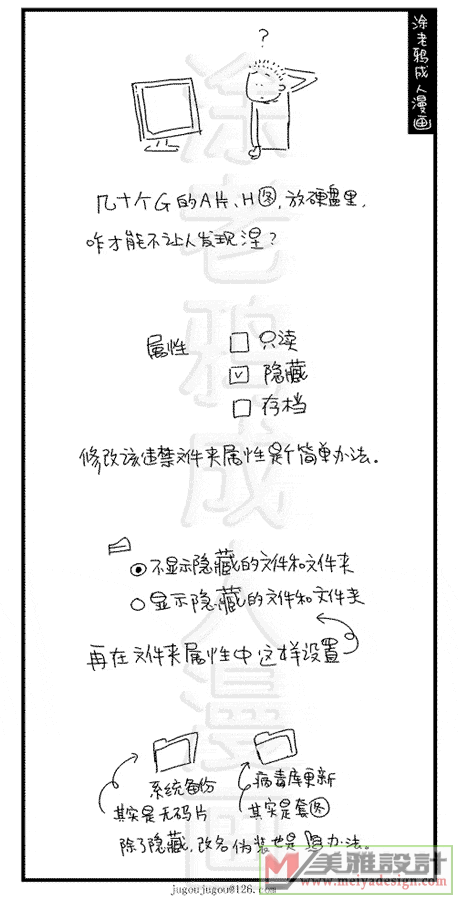 涂老鸦成人漫画
?
几十个G的A片、H图,放硬盘里,
咋才能不让人发现涅?
属性 只读
隐藏
存档
修改该违禁文件夹属性是个简单办法.
不显示隐藏的文件和文件夹
显示隐藏的文件和文件夹
再在文件夹属性中这样设置
系统备份 病毒库更新
其实是无码片 其实是套图
除了隐藏,改名伪装也是办法。
涂老鸦成人漫画
美雅設計
www.meiyadesign.com
jugoujugou@126.com